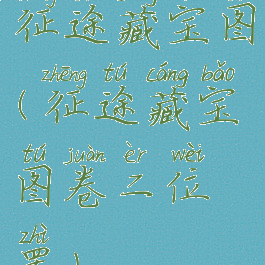 征途藏宝图
zhēng tú cáng bǎo
(征途藏宝
tú juàn èr wèi
图卷二位
zhì
置)